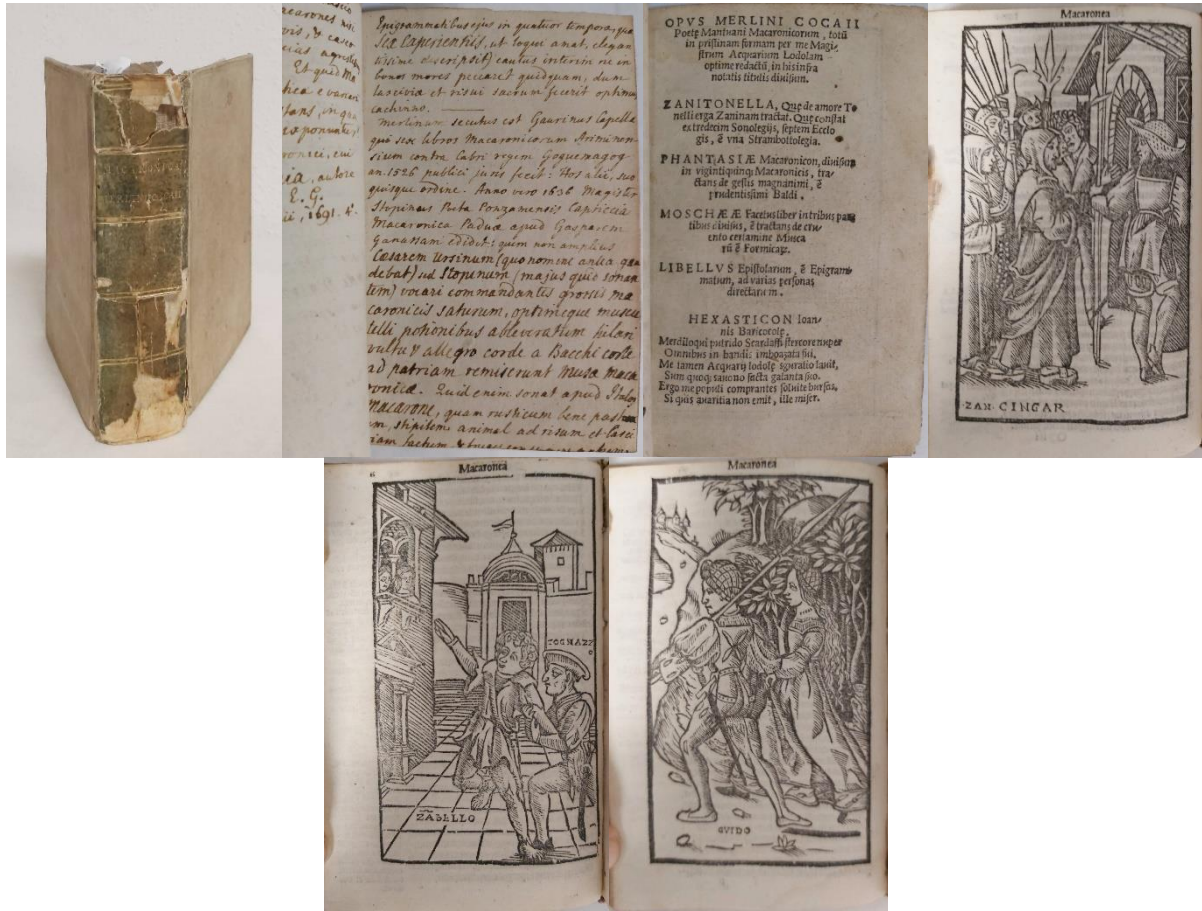 macarones nisi
vis, & caseo
cias agrestem
Et quid Ma
hea e varian
tans, in qua
exponuntur,
ronici, cui
ia, autore
E. G.
ii, 1691. 4°.
Epigrammatibus ejus in quatuor tempora, qua
sex caperientiis, ut loqui amat, elegan
tissime descripsit) cautus interim ne in
bonos mores peccaret quidquam, dum
lascivia et risui sacrum fecerit optimus
cachinno.
Merlinum secutus est Gaurinus Capella
qui sex libros Macaronicorum Ariminen-
sium contra Cabri regem Goguemagog
an. 1526 publici juris fecit: Hos alii, suo
quisque ordine. Anno vero 1636 Magister
Stopinus Poeta Ponzanensis Capriccia
Macaronica Paduæ apud Gasparem
Ganassam edidit: quem non amplius
Cæsarem Ursinum (quo nomine antea gau
debat) sed Stopinum (majus quid sonan
tem) vocari commandantes grossis ma
caronicis saturum, optimeque musca
telli potionibus abbeveratum hilari
vultu & allegro corde a Bacchi corte
ad patriam remiserunt musæ maca
ronicæ. Quid enim sonat apud Italos
Macarone, quam rusticum bene pastum
m, stipitem animal ad risum et lasci
viam factum
OPVS MERLINI COCAII
Poetę Mantuani Macaronicorum, totũ
in pristinam formam per me Magi-
strum Acquarium Lodolam
optime redactũ, in his infra
notatis titulis diuisum.
ZANITONELLA, Quę de amore To
nelli erga Zaninam tractat. Quę constat
ex tredecim Sonolegijs, septem Ecclo
gis, ẽ vna Strambottolegia.
PHANTASIÆ Macaronicon, diuisum
in vigintiquinq; Macaronicis, tra-
ctans de gestis magnanimi, ẽ
prudentissimi Baldi.
MOSCHÆÆ Facetus liber in tribus par
tibus diuisus, ẽ tractans de cru
ento certamine Musca
rũ ẽ Formicarũ.
LIBELLVS Epistolarum, ẽ Epigram
matum, ad varias personas
directarum.
HEXASTICON Ioan-
nis Baricocolę.
Merdiloqui putrido Scardaffi stercore nuper
Omnibus in bandis imboazata fui,
Me tamen Acquarij lodolę sguratio lauit,
Sum quoq; sauono facta galanta suo.
Ergo me populi comprantes soluite bursas,
Si quis auaritia non emit, ille miser.
Macaronea
ZAN CINGAR
Macaronea
TOGNAZZ
O
ZÃBELLO
Macaronea
GVIDO